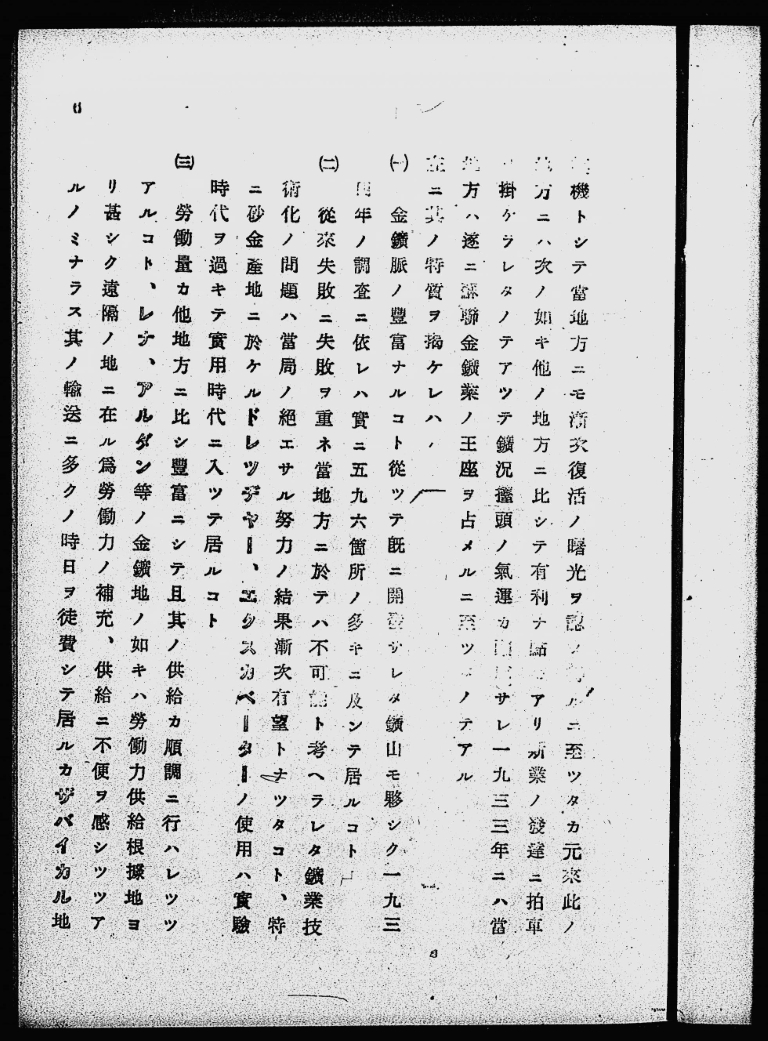 機トシテ當地方ニモ漸次復活ノ曙光ヲ認メ ルニ至ツタカ元來此ノ
方ニハ次ノ如キ他ノ地方ニ比シテ有利ナ點 アリ斯業ノ發達ニ拍車
掛ケラレタノテアツテ鑛況擡頭ノ氣運カ サレ一九三三年ニハ當
地方ハ遂ニ蘇聯金鑛業ノ王座ヲ占メルニ至ツタノテアル
左ニ其ノ特質ヲ揭ケレハ、
㈠ 金鑛脈ノ豐富ナルコト從ツテ既ニ開發サレタ鑛山モ夥シク一九三
年ノ調査ニ依レハ實ニ五九六箇所ノ多キニ及ンテ居ルコト
㈡ 從來失敗ニ失敗ヲ重ネ當地方ニ於テハ不可能ト考ヘラレタ鑛業技
術化ノ問題ハ當局ノ絕エサル努力ノ結果漸次有望トナツタコト、特
ニ砂金產地ニ於ケルドレツヂヤー、エクスカベーターノ使用ハ實驗
時代ヲ過キテ實用時代ニ入ツテ居ルコト
㈢ 勞働量カ他地方ニ比シ豐富ニシテ且其ノ供給カ順調ニ行ハレツツ
アルコト、レナ、アルダン等ノ金鑛地ノ如キハ勞働力供給根據地ヨ
リ甚シク遠隔ノ地ニ在ル爲勞働力ノ補充、供給ニ不便ヲ感シツツア
ルノミナラス其ノ輸送ニ多クノ時日ヲ徒費シテ居ルカザバイカル地